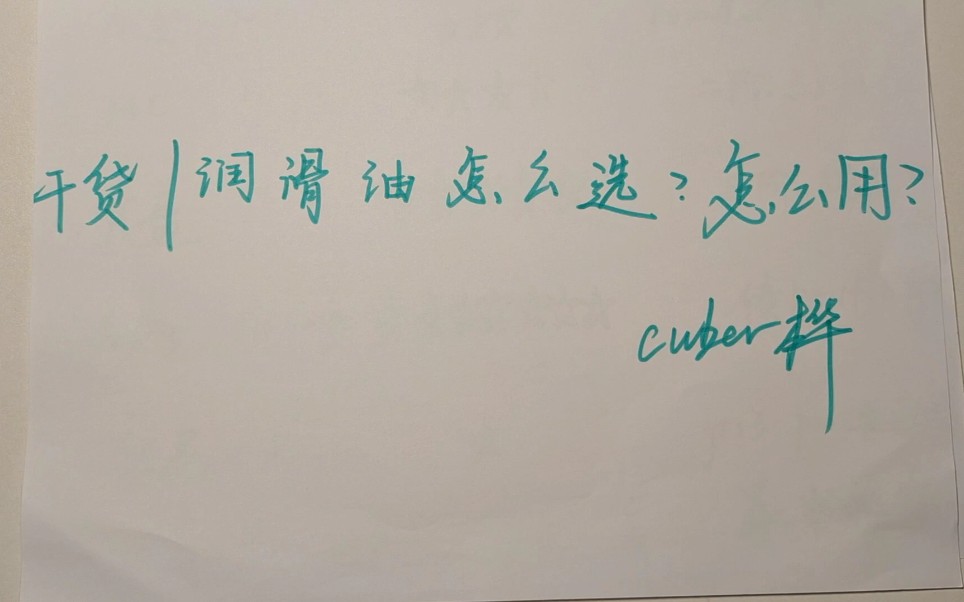 干货|润滑油怎么选?怎么用?
cuber桦